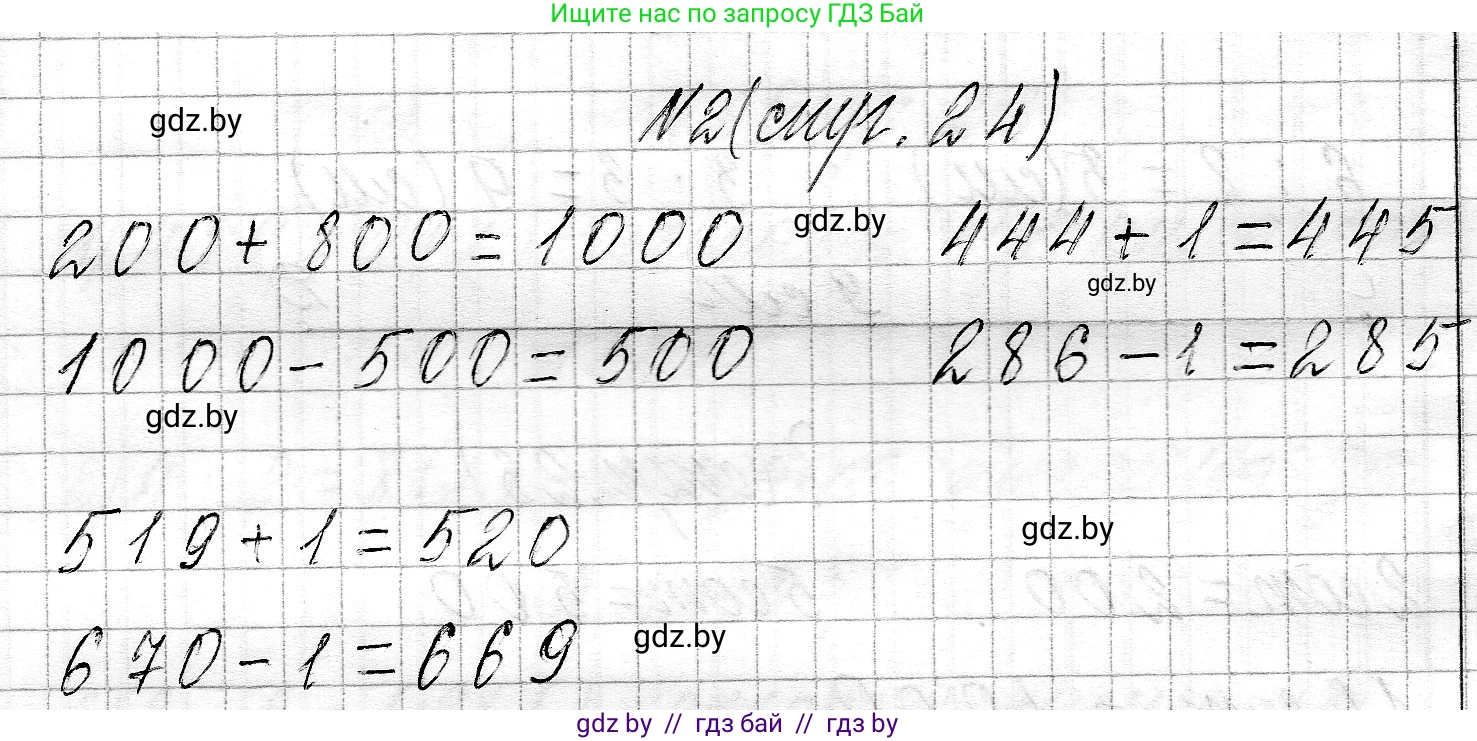 Ищите нас по запросу ГДЗ Бай
gdz.by
№2(смуг. 24)
200+800=1000 gdz.by 444+1=445
gdz.by
1000-500=500 286-1=285
gdz.by
519+1=520 gdz.by
670-1=669 gdz.by
gdz by // гдз бай // гдз by